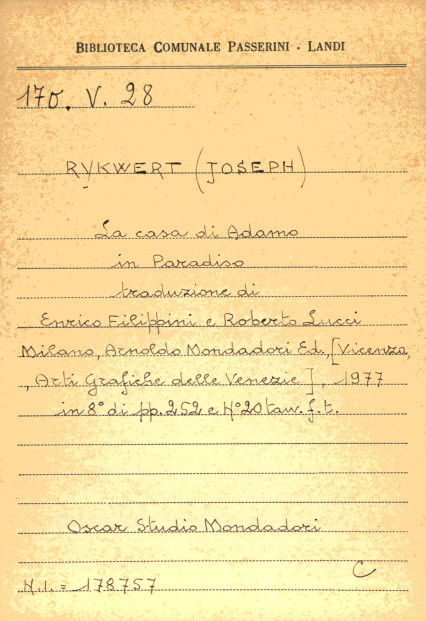 BIBLIOTECA COMUNALE PASSERINI - LANDI
170. V. 28
RYKWERT (JOSEPH)
La casa di Adamo
in Paradiso
traduzione di
Enrico Filippini e Roberto Lucci
Milano, Arnoldo Mondadori Ed., [Vicenza,
, Arti Grafiche delle Venezie], 1977
in 8° di pp. 252 e N° 20 tav. f. t.
Oscar Studio Mondadori
C
N.I. = 178757